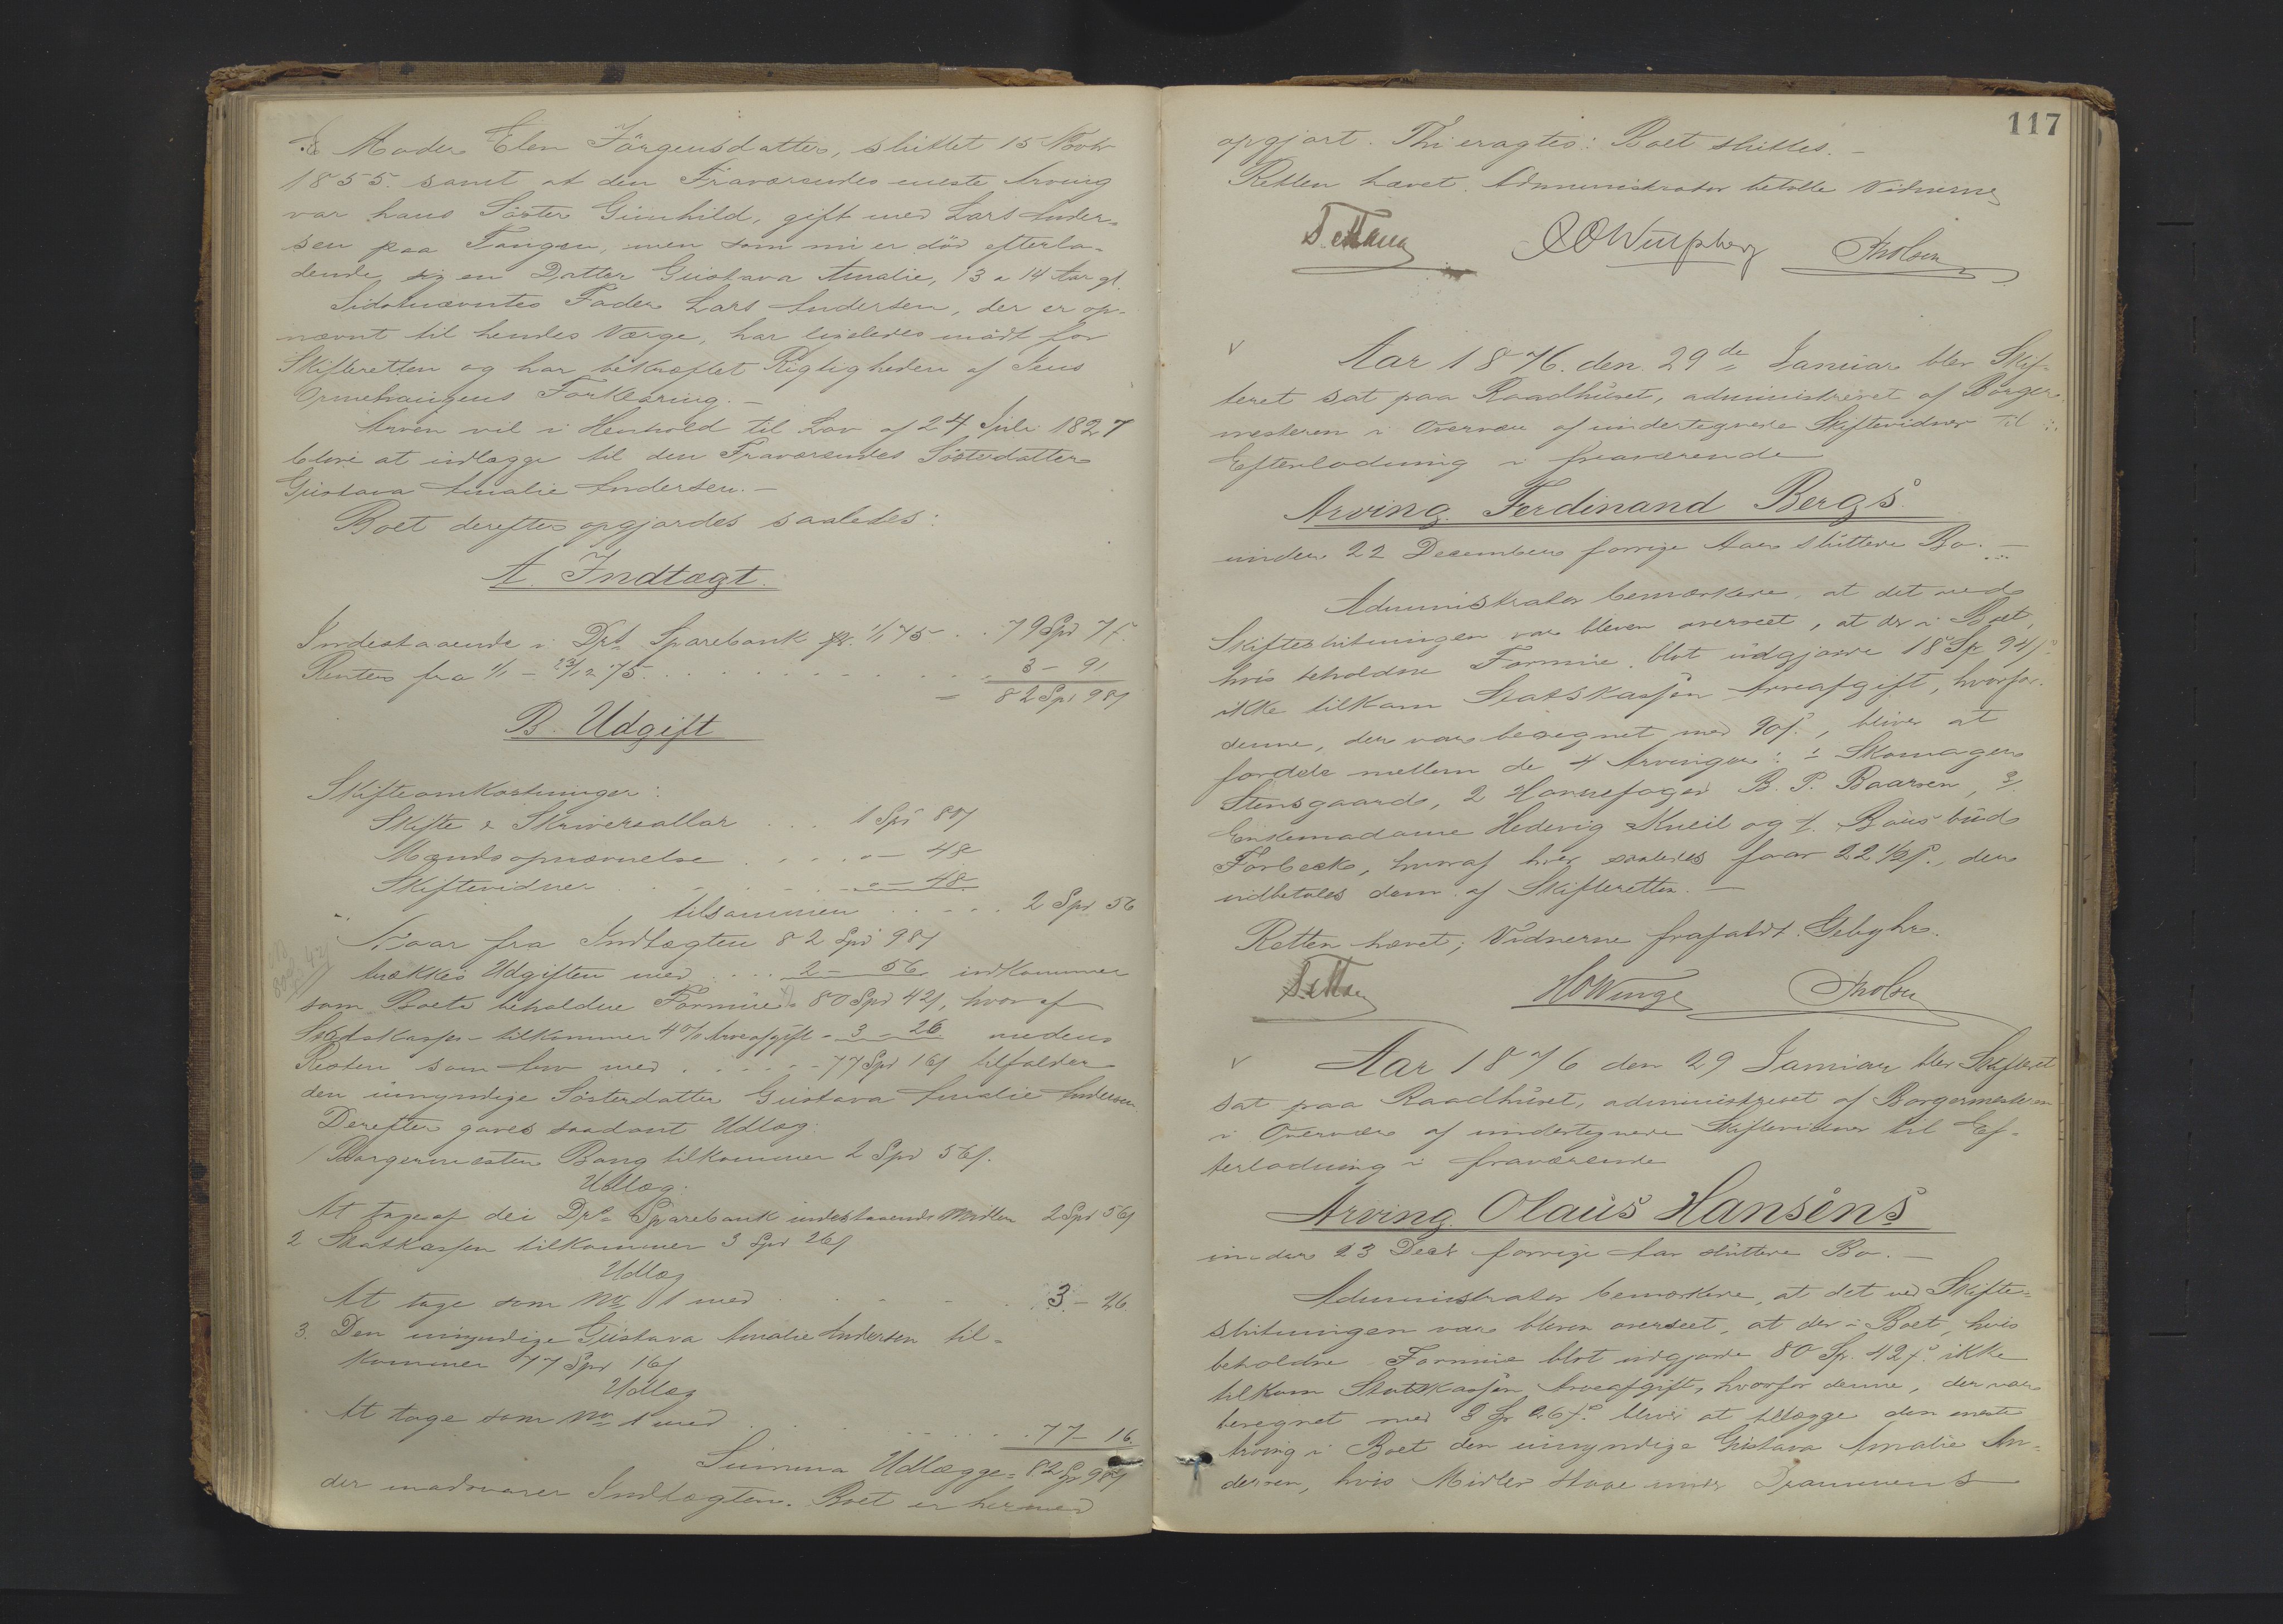 Moder Elen Jörgensdatter, sluttet 15 Novbr
1855. samt at den Fraværendes eneste Arving
var hans Söster Gunhild, gift med Lars Ander-
sen paa Tangen, men som nu er död efterla-
dende sig en Datter Gustava Amalie, 13 a 14 Aar gl.
Sidstnævntes Fader Lars Andersen, der er op-
nævnt til hendes Værge, har ligeledes mödt for
Skifteretten og har bekræftet Rigtigheden af Jens
Forklaring. -
Arven vil i Henhold til Lov af 24 Juli 1827
blive at udlægge til den Fraværendes Sösterdatter
Gustava Amalie Andersen. -
Boet derefter opgjordes saaledes:
A. Indtægt.
Indestaaende i Drs Sparebank pr. 1/1 75 . . 79 Spd 7 s.
Renter fra 1/1 - 23/12 75. . . . 3 - 91
= 82 Spd 98 s
B. Udgift
Skifteomkostninger:
Skifte & Skriversallar . . . 1 Spd 80 s
Mændsopnævnelse . . . . " - 48
Skiftevidner . . . . " - 48
tilsammen . . . . 2 Spd 56
Naar fra Indtægten 82 Spd 98 s
trækkes Udgiften med . . . 2 - 56 udkommer
som Boets beholdne Formue 80 Spd 42 s, hvoraf
Statskassen tilkommer 4 % Arveafgift - 3 - 26 medens
Resten som Arv med . . . . 77 Spd 16 s tilfalder
den umyndige Sösterdatter Gustava Amalie Andersen.
Derefter gaves saadant Udlæg:
1 Borgermester Bang tilkommer 2 Spd 56 s.
Udlæg.
At tage af de i Drs Sparebank indestaaende Midler 2 Spd 56 s
2 Statkassen tilkommer 3 Spd 26 s
Udlæg
At tage som No 1 med . . . 3 - 26
3. Den umyndige Gustava Amalie Andersen til-
kommer 77 Spd 16 s
Udlæg
At tage som No 1 med . . . 77 - 16.
Summa Udlægget = 82 Sp 98 s
der modsvarer Indtægten. Boet er hermed
117
opgjort. Thi eragtes: Boet sluttes. -
Retten hævet. Administrator betalte Vidnerne
Aar 1876. den 29de Januar blev Skif-
teret sat paa Raadhuset, administreret af Borger-
mesteren i Overvær af undertegnede Skiftevidner til
Efterlodning i fraværende
Arving Ferdinand Bergs
under 22 December forrige Aar sluttede Bo. -
Administrator bemærkede, at det ved
Skifteslutningen var bleven overseet, at der i Boet,
hvis beholdne Formue blot udgjorde 18 Sp 94 s.
ikke tilkom Statskassen Arveafgift, hvorfor
denne, der var beregnet med 90 s., bliver at
fordele mellem de 4 Arvinger: 1 Skomager
Stensgaard, 2 B. P. Baarsen, 3
Enkemadame Hedevig og 4. Bud
Forbeck, hvoraf hver saaledes faar 22 1/2 s., der
udbetales dem af Skifteretten. -
Retten hævet; Vidnerne frafaldt Gebyhr.
H O Winge
Aar 1876 den 29 Januar blev Skifteret
sat paa Raadhuset, administreret af Borgermesteren
i Overvær af undertegnede Skiftevidner til Ef-
terlodning i fraværende
Arving Olaus Hansens
under 23 Decbr forrige Aar sluttede Bo. -
Administrator bemærkede, at det ved Skifte-
slutningen var bleven overseet, at der i Boet, hvis
beholdne Formue blot udgjorde 80 Sp. 42 s. ikke
tilkom Statskassen Arveafgift, hvorfor denne, der var
beregnet med 3 Sp 26 s. bliver at tillægge den eneste
Arving i Boet den umyndige Gustava Amalie An-
dersen, hvis Midler staae under Drammens